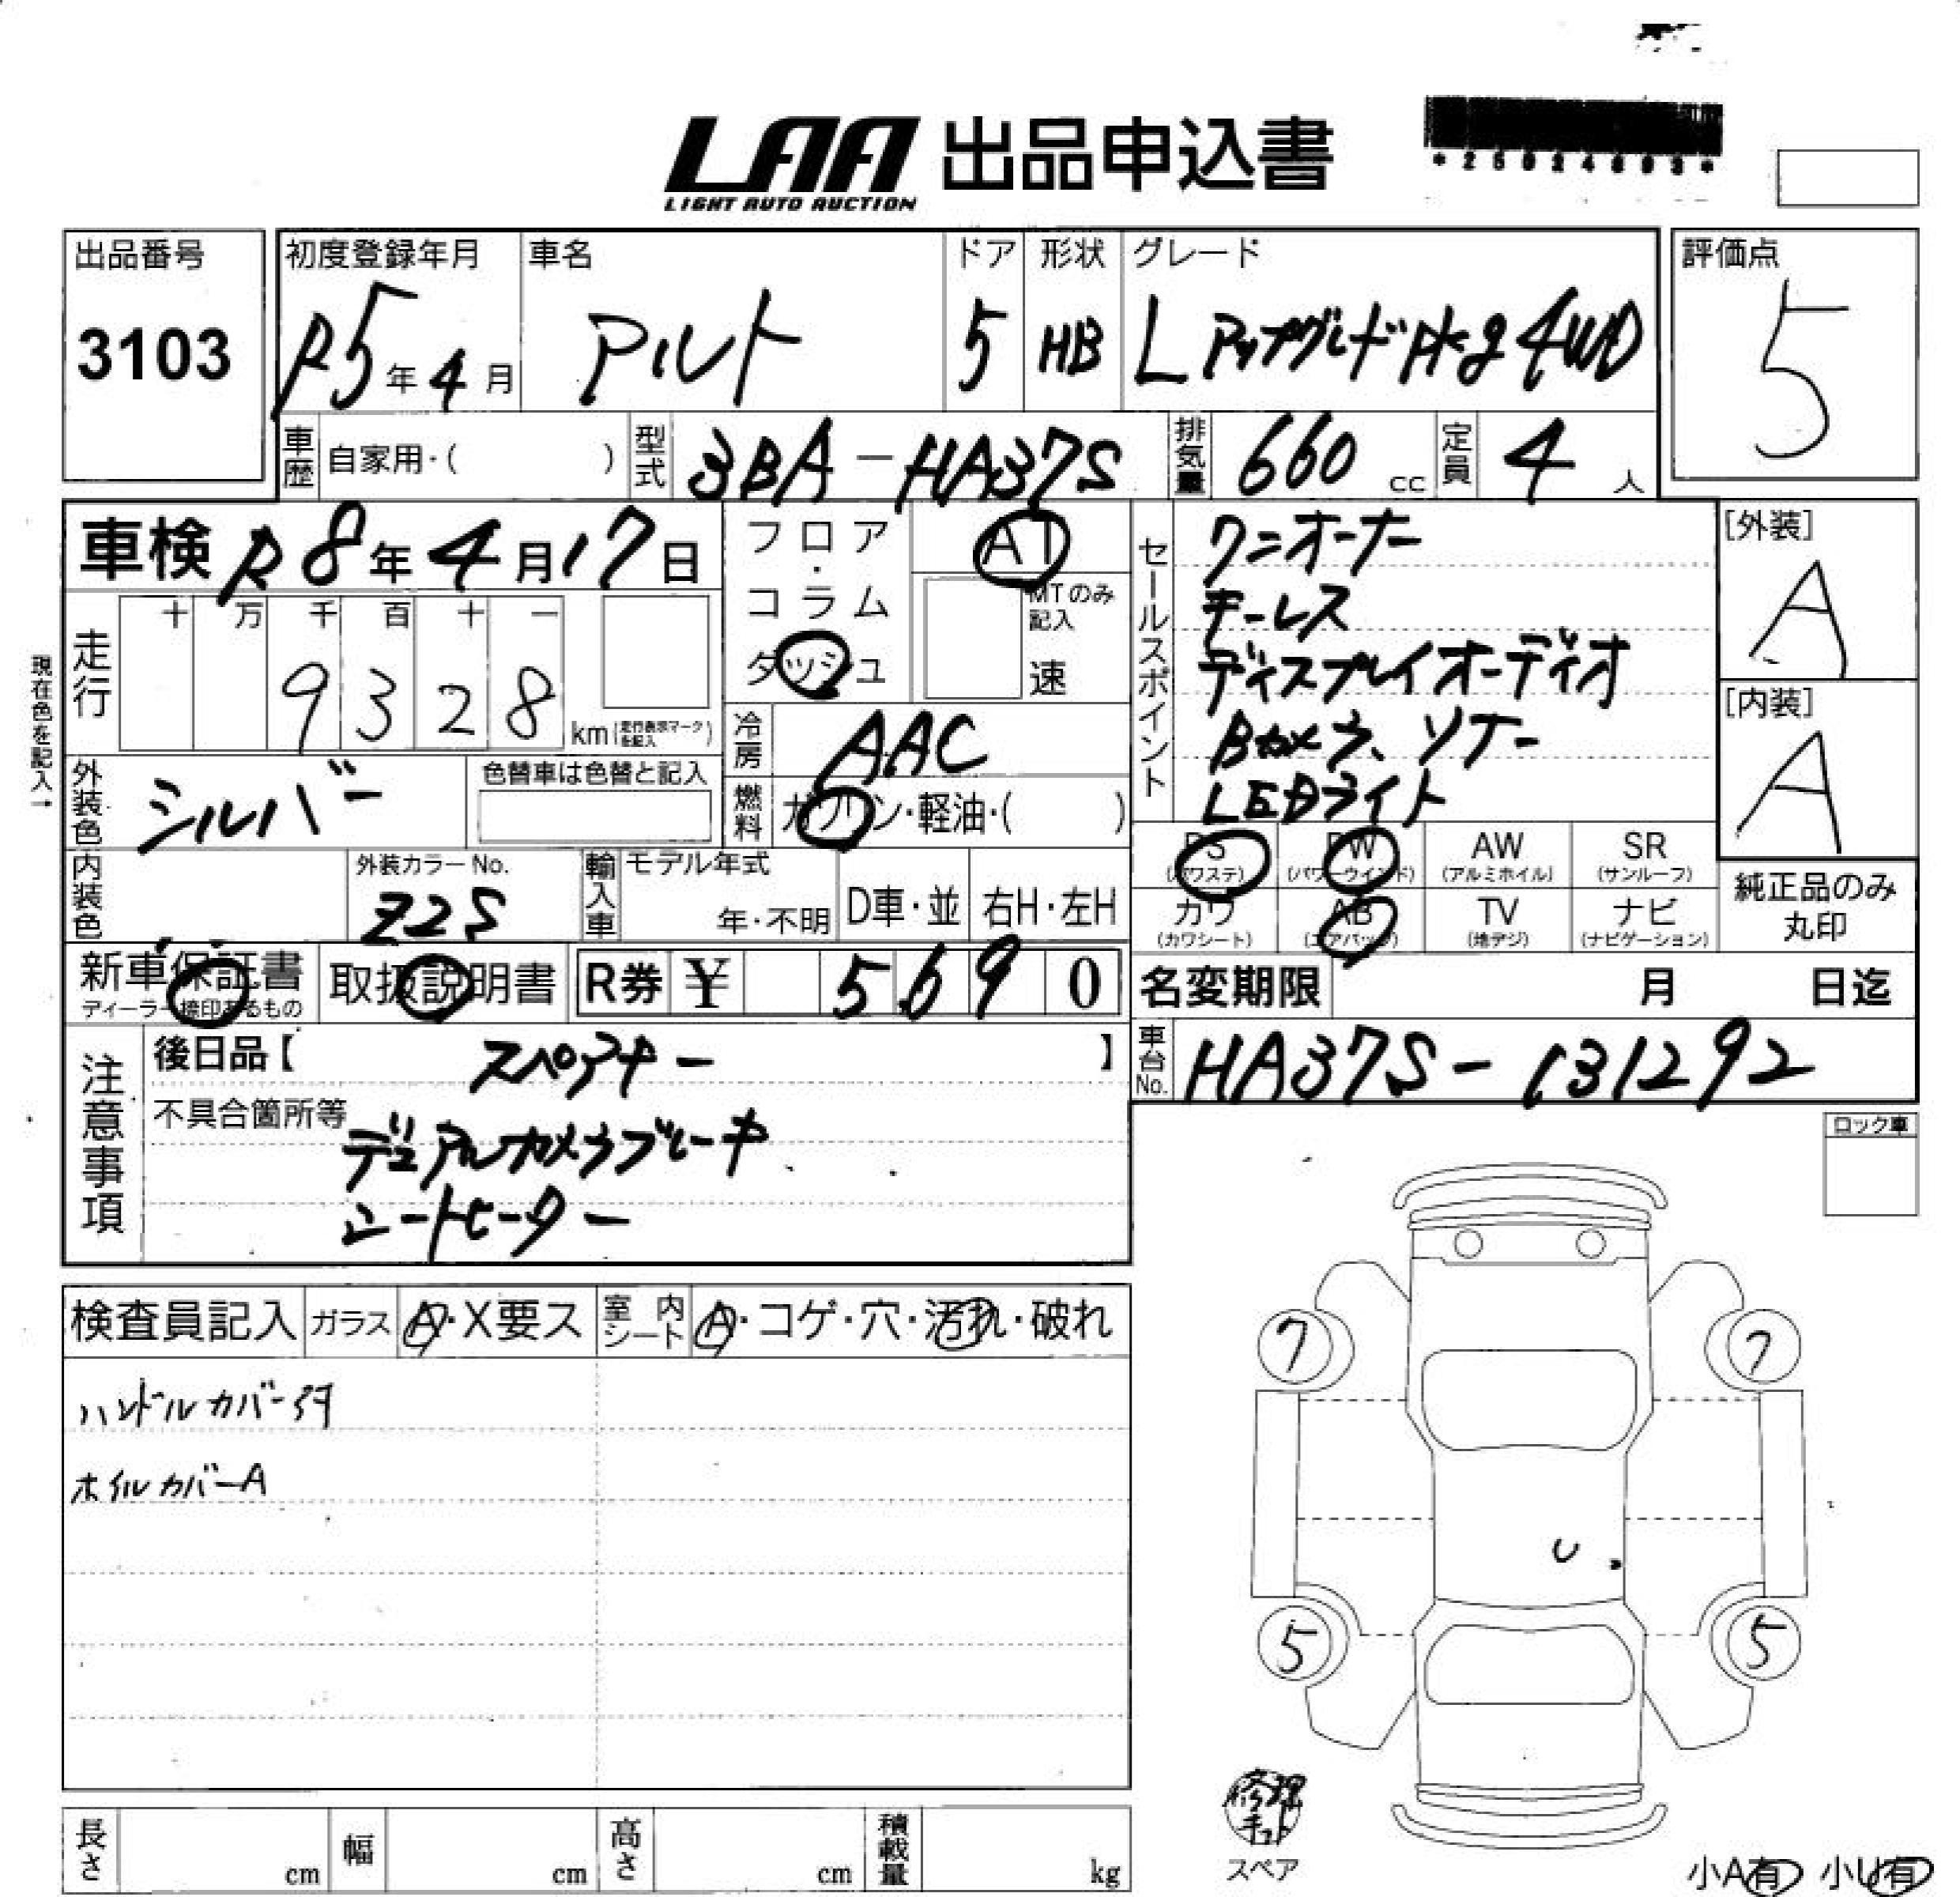 LAA 出品申込書
LIGHT AUTO AUCTION
*25024803*
出品番号
3103
初度登録年月
R5年4月
車名
アルト
ドア
5
形状
HB
グレード
L アップグレードPkg 4WD
評価点
5
車歴 自家用・( )
型式 3BA-HA37S
排気量 660 cc
定員 4 人
車検 R8年4月17日
フロア・コラム
ダッシュ
AT
MTのみ記入
速
セールスポイント
ワンオーナー
キーレス
ディスプレイオーディオ
Bカメラ、ソナー
LEDライト
[外装]
A
[内装]
A
現在色を記入→
走行 十 万 千 百 十 一
9328 km(走行表示マークを記入)
冷房 AAC
外装色 シルバー
色替車は色替と記入
燃料 ガソリン・軽油・( )
内装色
外装カラーNo.
Z2S
輸入車
モデル年式
年・不明
D車・並
右H・左H
PS (パワステ)
PW (パワーウインド)
AW (アルミホイル)
SR (サンルーフ)
カワ (カワシート)
AB (エアバッグ)
TV (地デジ)
ナビ (ナビゲーション)
純正品のみ
丸印
新車保証書
ディーラー捺印あるもの
取扱説明書
R券 ¥ 5690
名変期限 月 日迄
注意事項
後日品【 スペアキー 】
不具合箇所等
デュアルカメラブレーキ
シートヒーター
車台No. HA37S-131292
ロック車
検査員記入
ガラス A・X要ス
室内シート A・コゲ・穴・汚れ・破れ
ハンドルカバー汚
ホイルカバーA
7
7
U
5
5
修理キット
スペア
長さ cm
幅 cm
高さ cm
積載量 kg
小A有 小U有